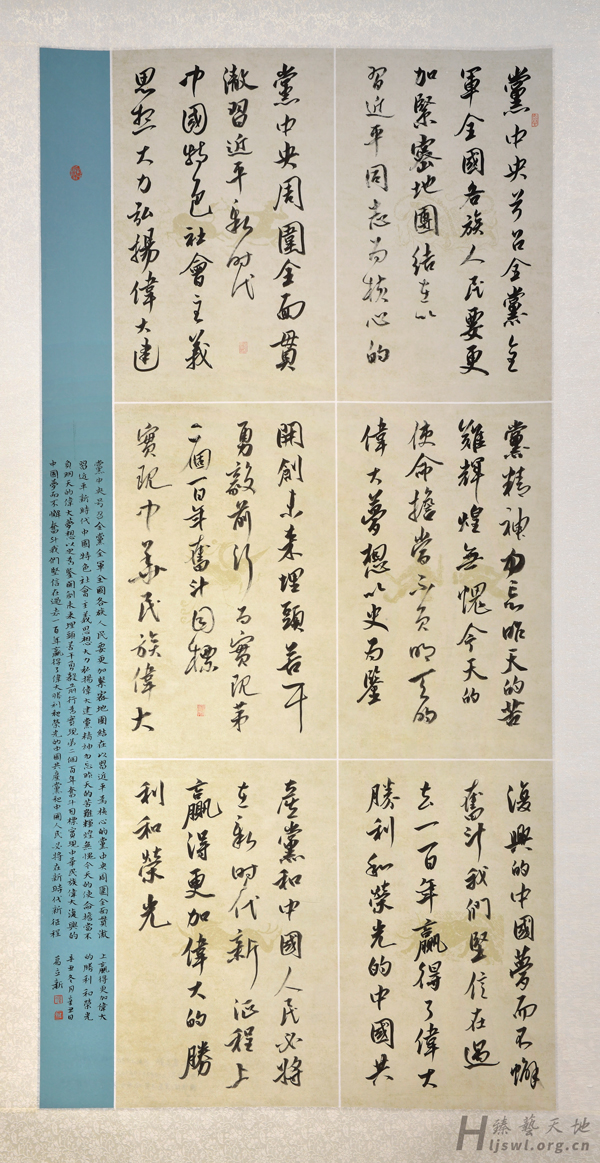 黨中央号召全黨全
軍全國各族人民要更
加緊密地團結在以
習近平同志為核心的
黨中央周圍全面貫
徹習近平新时代
中國特色社會主義
思想大力弘揚偉大建
黨精神勿忘昨天的苦
難輝煌無愧今天的
使命擔當不負明天的
偉大夢想以史為鑒
開創未來埋頭苦干
勇毅前行為實現第
二個一百年奮斗目標
實現中華民族偉大
復興的中國夢而不懈
奮斗我們堅信在過
去一百年贏得了偉大
勝利和榮光的中國共
產黨和中國人民必將
在新时代新征程上
贏得更加偉大的勝
利和榮光
黨中央号召全黨全軍全國各族人民要更加緊密地團結在以習近平為核心的黨中央周圍全面貫徹
習近平新時代中國特色社會主義思想大力弘揚偉大建黨精神勿忘昨天的苦難輝煌無愧今天的使命擔當不
負明天的偉大夢想以史為鑒開創未來埋頭苦干勇毅前行為實現第二個百年奮斗目標實現中華民族偉大復興的
中國夢而不懈奮斗我們堅信在過去一百年贏得了偉大勝利和榮光的中國共產黨和中國人民必將在新時代新征程
上贏得更加偉大
的勝利和榮光
辛丑冬月吉日
臻藝天地
Hljswl.org.cn